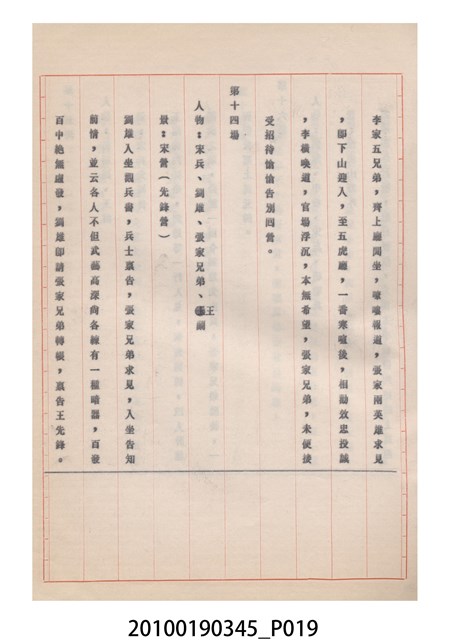 李家五兄弟，齊上廳閒坐，嘍囉報道，張家兩英雄求見
，卽下山迎入，至五虎廳，一番寒喧後，相勸效忠投誠
，李橫喚道，官場浮沉，本無希望，張家兄弟，未便接
受招待愴愴告別回營。
第十四場
人物：宋兵、劉雄、張家兄弟、王
景：宋營（先鋒營）
劉雄入坐觀兵書，兵士禀告，張家兄弟求見，入坐告知
前情，並云各人不但武藝高深尚各練有一種暗器，百發
百中絶無虛發，劉雄卽請張家兄弟轉帳，禀告王先鋒。
20100190345_P019